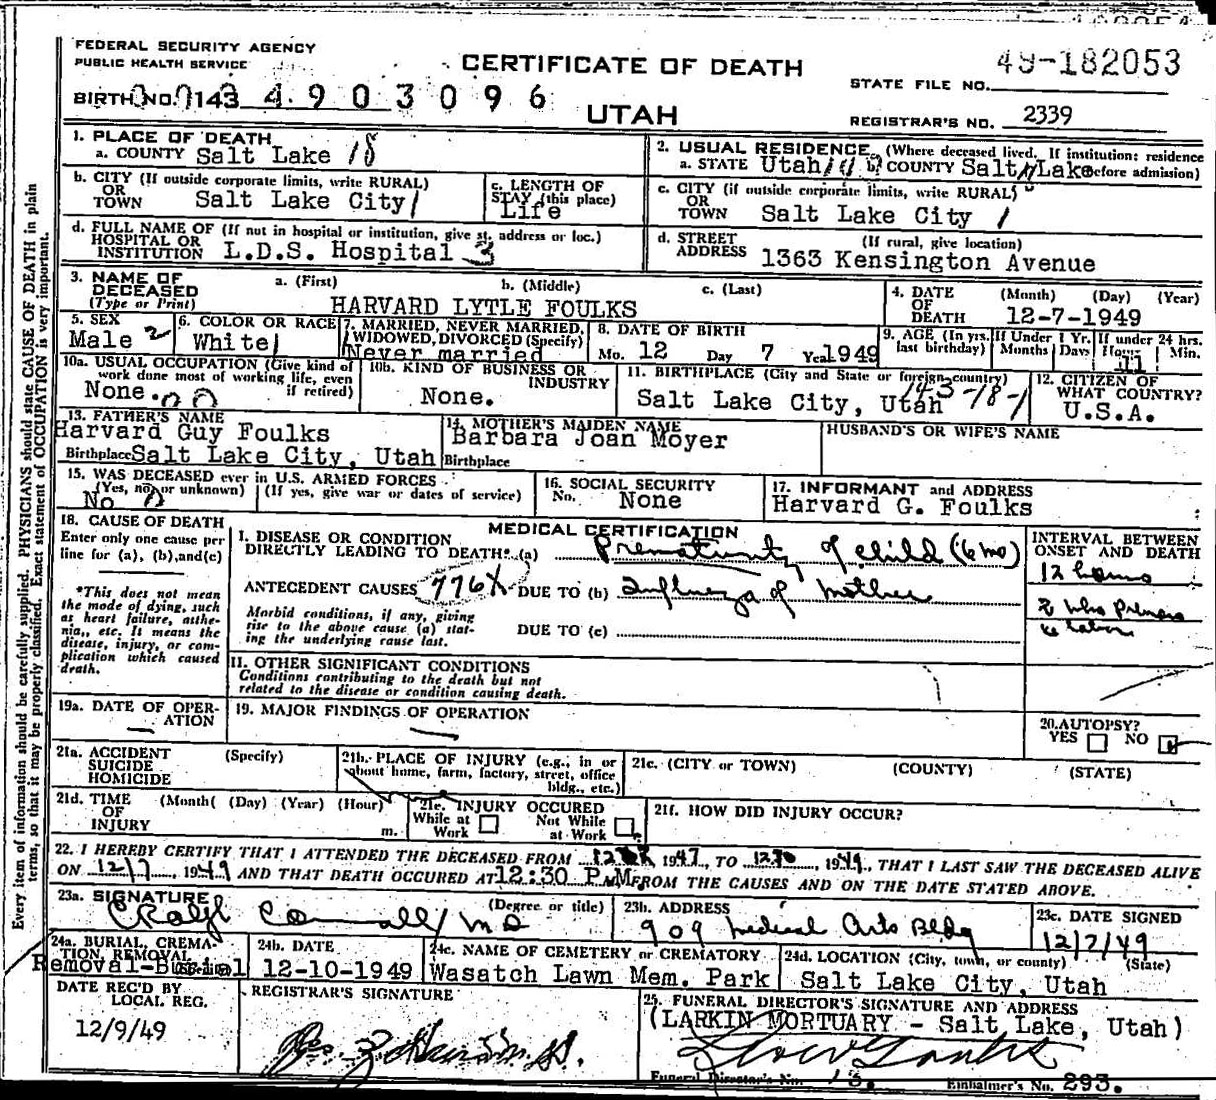 FEDERAL SECURITY AGENCY
PUBLIC HEALTH SERVICE
CERTIFICATE OF DEATH
UTAH
STATE FILE NO. 49-182053
BIRTH NO. 143 4903096
REGISTRAR'S NO. 2339
1. PLACE OF DEATH
a. COUNTY Salt Lake 18
b. CITY (If outside corporate limits, write RURAL)
OR
TOWN Salt Lake City 1
c. LENGTH OF
STAY (this place)
Life
d. FULL NAME OF (If not in hospital or institution, give st. address or loc.)
HOSPITAL OR
INSTITUTION L.D.S. Hospital 3
2. USUAL RESIDENCE (Where deceased lived. If institution: residence
a. STATE Utah b. COUNTY Salt Lake before admission)
c. CITY (if outside corporate limits, write RURAL)
OR
TOWN Salt Lake City 1
d. STREET (If rural, give location)
ADDRESS 1363 Kensington Avenue
3. NAME OF a. (First) b. (Middle) c. (Last)
DECEASED
(Type or Print) HARVARD LYTLE FOULKS
4. DATE (Month) (Day) (Year)
OF
DEATH 12-7-1949
5. SEX
Male 2
6. COLOR OR RACE
White 1
7. MARRIED, NEVER MARRIED,
WIDOWED, DIVORCED (Specify)
Never married
8. DATE OF BIRTH
Mo. 12 Day 7 Year 1949
9. AGE (In yrs. last birthday) If Under 1 Yr. Months Days If under 24 hrs. Hours Min.
11
10a. USUAL OCCUPATION (Give kind of
work done most of working life, even
if retired)
None.
10b. KIND OF BUSINESS OR
INDUSTRY
None.
11. BIRTHPLACE (City and State or foreign country)
Salt Lake City, Utah 143-18-1
12. CITIZEN OF
WHAT COUNTRY?
U.S.A.
13. FATHER'S NAME
Harvard Guy Foulks
Birthplace Salt Lake City, Utah
14. MOTHER'S MAIDEN NAME
Barbara Joan Moyer
Birthplace
HUSBAND'S OR WIFE'S NAME
15. WAS DECEASED ever in U.S. ARMED FORCES
(Yes, no, or unknown) (If yes, give war or dates of service)
No
16. SOCIAL SECURITY
No. None
17. INFORMANT and ADDRESS
Harvard G. Foulks
18. CAUSE OF DEATH
Enter only one cause per
line for (a), (b), and (c)
*This does not mean
the mode of dying, such
as heart failure, asthe-
nia, etc. It means the
disease, injury, or com-
plication which caused
death.
MEDICAL CERTIFICATION
I. DISEASE OR CONDITION
DIRECTLY LEADING TO DEATH* (a) Prematurity of child (6 mo)
ANTECEDENT CAUSES 776X DUE TO (b) Influenza of mother
Morbid conditions, if any, giving
rise to the above cause (a) stat-
ing the underlying cause last.
DUE TO (c)
II. OTHER SIGNIFICANT CONDITIONS
Conditions contributing to the death but not
related to the disease or condition causing death.
INTERVAL BETWEEN
ONSET AND DEATH
12 hours
to labor
19a. DATE OF OPER-
ATION
19. MAJOR FINDINGS OF OPERATION
20. AUTOPSY?
YES NO
21a. ACCIDENT (Specify)
SUICIDE
HOMICIDE
21b. PLACE OF INJURY (e.g., in or
about home, farm, factory, street, office
bldg., etc.)
21c. (CITY or TOWN) (COUNTY) (STATE)
21d. TIME (Month) (Day) (Year) (Hour)
OF
INJURY m.
21e. INJURY OCCURED
While at Not While
Work at Work
21f. HOW DID INJURY OCCUR?
22. I HEREBY CERTIFY THAT I ATTENDED THE DECEASED FROM 1947, TO 1949, THAT I LAST SAW THE DECEASED ALIVE
ON 12/7, 1949 AND THAT DEATH OCCURED AT 12:30 P.M. FROM THE CAUSES AND ON THE DATE STATED ABOVE.
23a. SIGNATURE (Degree or title)
MD
23b. ADDRESS
909 Medical Arts Bldg
23c. DATE SIGNED
12/7/49
24a. BURIAL, CREMA-
TION, REMOVAL
Removal-Burial
24b. DATE
12-10-1949
24c. NAME OF CEMETERY or CREMATORY
Wasatch Lawn Mem. Park
24d. LOCATION (City, town, or county) (State)
Salt Lake City, Utah
DATE REC'D BY
LOCAL REG.
12/9/49
REGISTRAR'S SIGNATURE
25. FUNERAL DIRECTOR'S SIGNATURE AND ADDRESS
(LARKIN MORTUARY - Salt Lake, Utah)
Funeral Director's No. 13. Embalmer's No. 293.
Every item of information should be carefully supplied. PHYSICIANS should state CAUSE OF DEATH in plain
terms, so that it may be properly classified. Exact statement of OCCUPATION is very important.